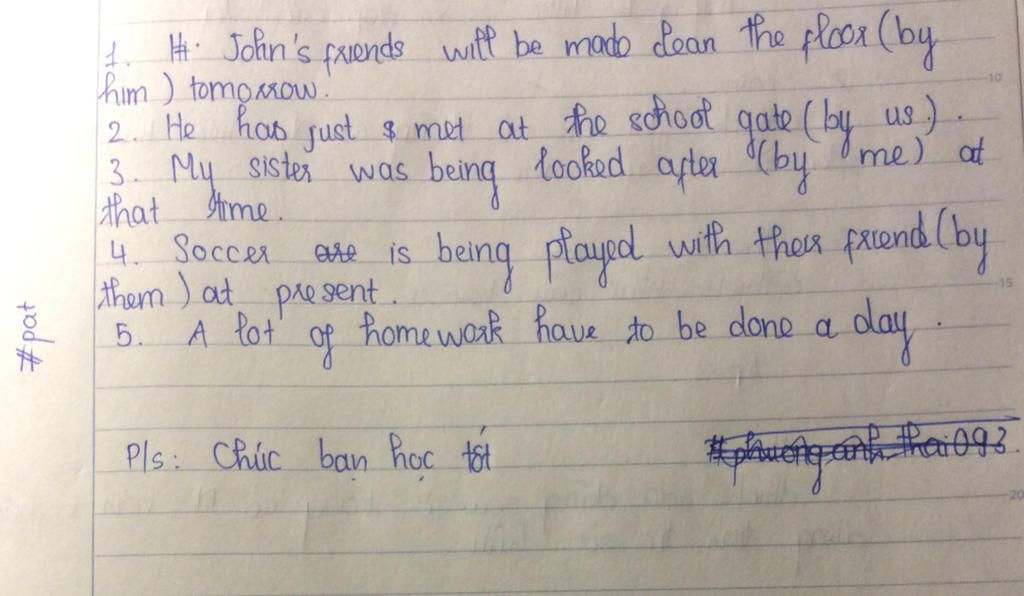 1. John's friends will be made clean the floor (by
him) tomorrow.
2. He has just met at the school gate (by us).
3. My sister was being looked after (by me) at
that time.
4. Soccer are is being played with their friend (by
them) at present.
5. A lot of homework have to be done a day.
#pat
P/s: Chúc bạn học tốt
#phuong anh thai093